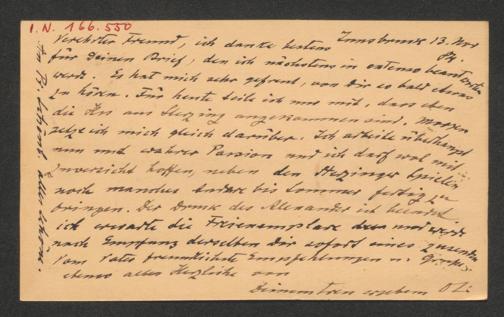 I.N. 166.550
Innsbruck 13. Nov
Verehrter Freund, ich danke bestens
für Deinen Brief, den ich nächstens in extenso beantworten
werde. Es hat mich sehr gefreut, von Dir so bald etwas
zu hören. Für heute teile ich nur mit, dass eben
die aus Sterzing angekommen sind. Morgen
setze ich mich gleich darüber. Ich arbeite überhaupt
nun mit wahrer Passion und ich darf wol mit
Zuversicht hoffen, neben den Sterzinger Spielen
noch manches Andere bis Sommer fertig zu
bringen. Der Druck des Alexander ist beendet.
ich erwarte die Freiexemplare und werde
nach Empfang derselben Dir sofort eines zusenden
Vom Vater freundlichste Empfehlungen u.
ebenso alles Herzliche von
Deinem treu ergebenen